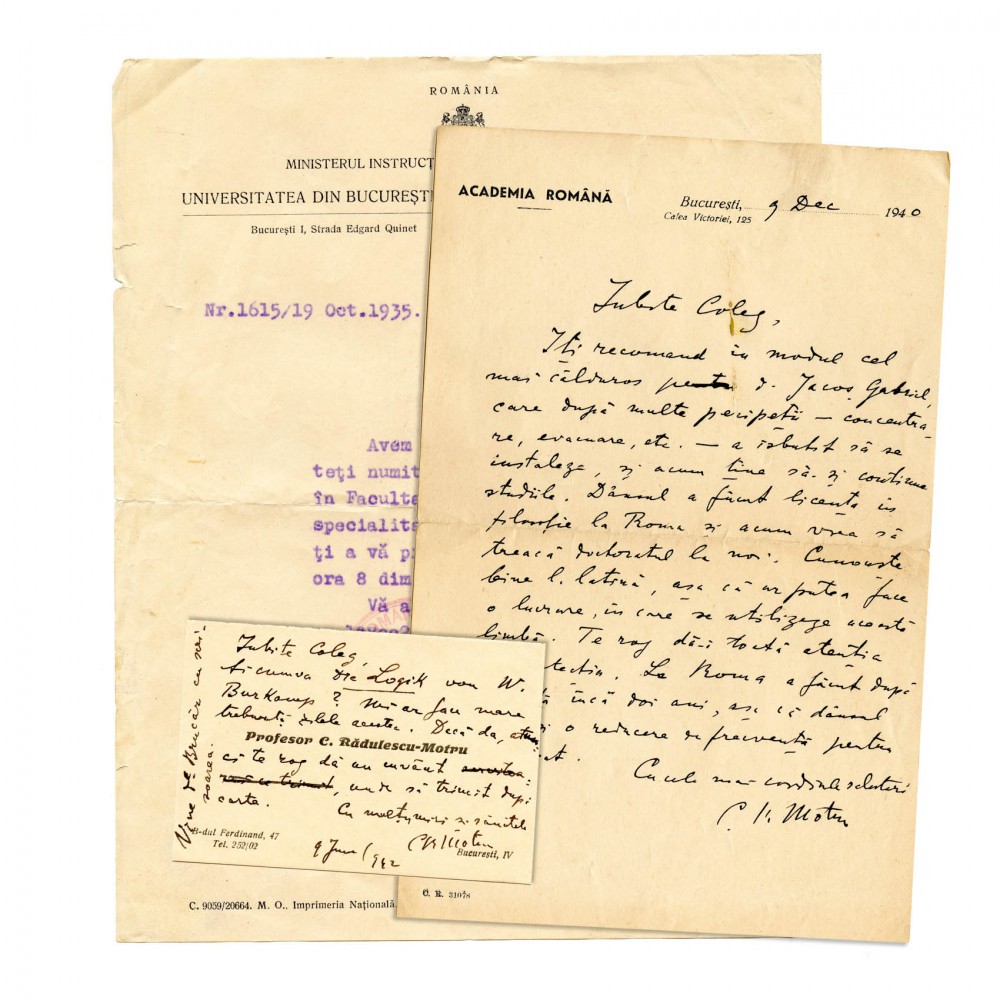 ROMÂNIA
MINISTERUL INSTRUCȚ
UNIVERSITATEA DIN BUCUREȘTI
București I, Strada Edgard Quinet
Nr.1615/19 Oct.1935.
Avem
teţi numit
în Faculte
specialita
ţi a vă p
ora 8 dim
Vă a
C. 9059/20664. M. O., Imprimeria Națională.
ACADEMIA ROMÂNĂ
București, 9 Dec 1940
Calea Victoriei, 125
Iubite Coleg,
Iți recomand în modul cel
mai călduros pentru d. Jacoș Gabriel,
care după multe peripeții — concentra-
re, evacuare, etc. — a isbutit să se
instaleze, și acum ține să-și continue
studiile. Dânsul a făcut licența în
filosofie la Roma și acum vrea să
treacă doctoratul la noi. Cunoaște
bine l. latină, așa că ar putea face
o lucrare, în care se utilizeze această
limbă. Te rog dă-i toată atenția
La Roma a făcut după
încă doi ani, așa că dânsul
și o reducere de frecvență pentru
Cu cele mai cordiale salutări
C. R. Motru
C. R. 31078
Iubite Coleg,
Ai cumva Die Logik von W.
Burkamp? Mi-ar face mare
trebuință zilele acestea. Dacă da,
Profesor C. Rădulescu-Motru
te rog dă un cuvânt
unde să trimit după
carte.
Cu mulțumiri și
CR Motru
B-dul Ferdinand, 47
Tel. 252/02
9 Jun 1942
București, IV
Vine dl Brucăr cu scri-
soarea.